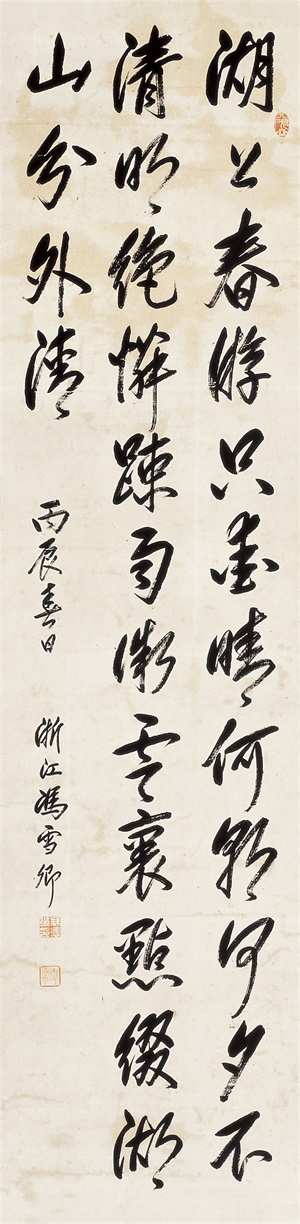 湖上春游只愛晴何朝何夕不
清明絕憐疎雨微雲裏點綴湖
山分外清
丙辰春日
浙江馮雪卿